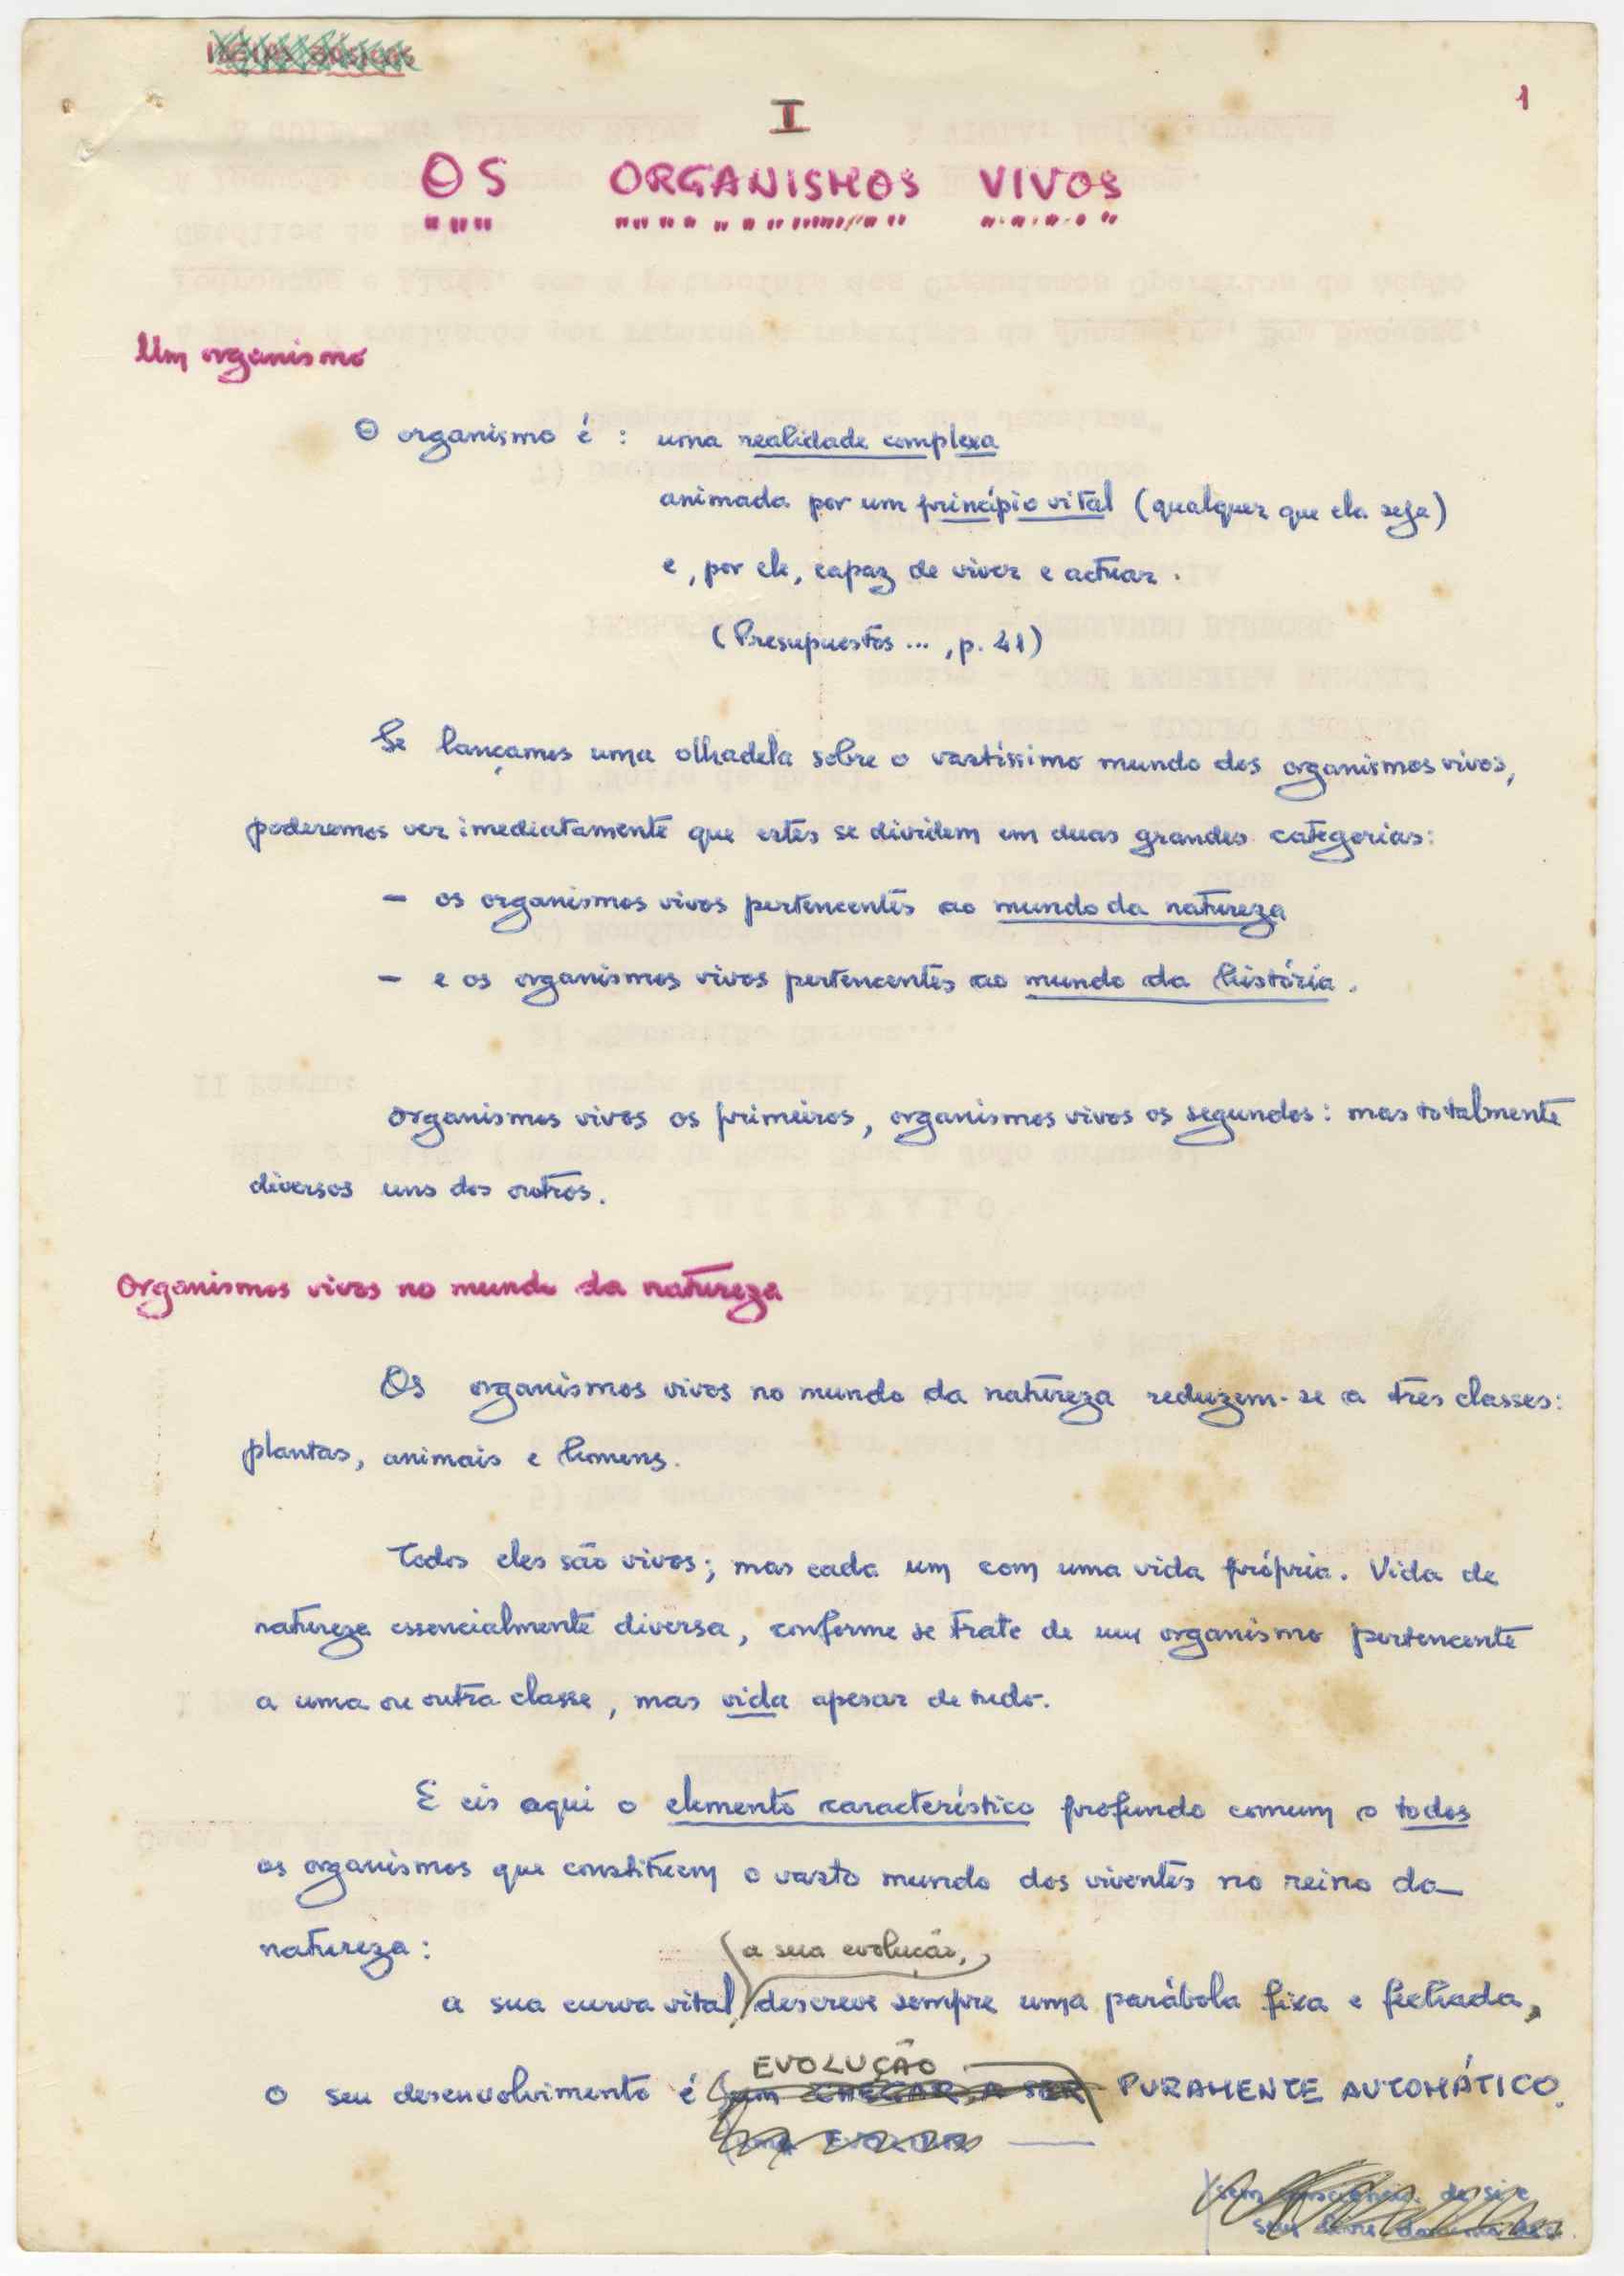 I
1
OS ORGANISMOS VIVOS
Um organismo
O organismo é : uma realidade complexa
animada por um princípio vital (qualquer que ela seja)
e, por ele, capaz de viver e actuar.
(Presupuestos ..., p. 41)
Se lançamos uma olhadela sobre o vastíssimo mundo dos organismos vivos,
poderemos ver imediatamente que estes se dividem em duas grandes categorias:
- os organismos vivos pertencentes ao mundo da natureza
- e os organismos vivos pertencentes ao mundo da história.
Organismos vivos os primeiros, organismos vivos os segundos: mas totalmente
diversos uns dos outros.
Organismos vivos no mundo da natureza
Os organismos vivos no mundo da natureza reduzem-se a três classes:
plantas, animais e homens.
Todos eles são vivos; mas cada um com uma vida própria. Vida de
natureza essencialmente diversa, conforme se trate de um organismo pertencente
a uma ou outra classe, mas vida apesar de tudo.
E eis aqui o elemento característico profundo comum a todos
os organismos que constituem o vasto mundo dos viventes no reino da
natureza:
a sua evolução,
a sua curva vital, descreve sempre uma parábola fixa e fechada,
EVOLUÇÃO
o seu desenvolvimento é um CHEGAR A SER PURAMENTE AUTOMÁTICO.
sem consciência de si e
sem livre